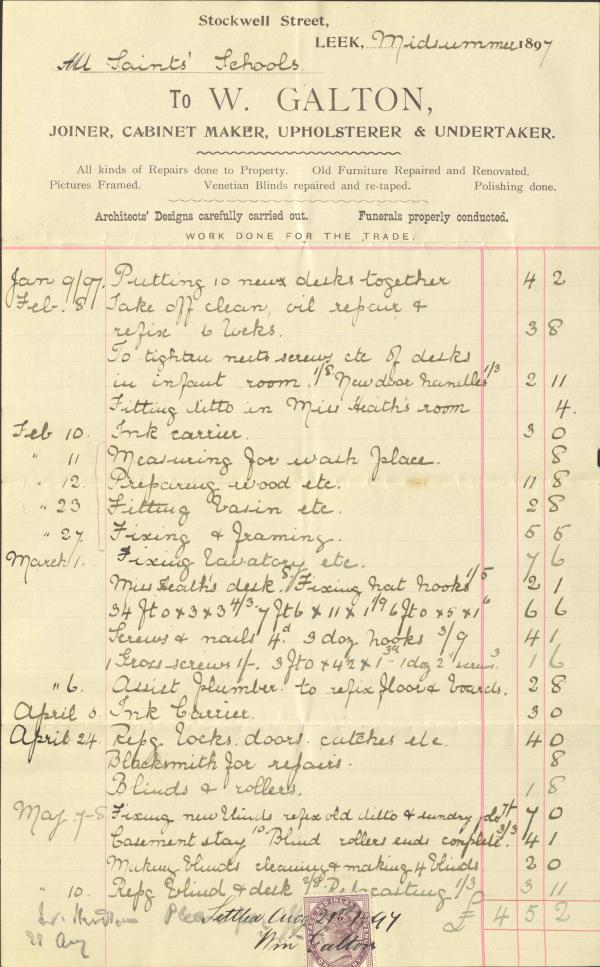 Stockwell Street,
LEEK, Midsummer 1897
All Saints' Schools
To W. GALTON,
JOINER, CABINET MAKER, UPHOLSTERER & UNDERTAKER.
All kinds of Repairs done to Property. Old Furniture Repaired and Renovated.
Pictures Framed. Venetian Blinds repaired and re-taped. Polishing done.
Architects' Designs carefully carried out. Funerals properly conducted.
WORK DONE FOR THE TRADE.
Jan 9/97. Putting 10 new desks together 4 2
Feb. 8 Take off clean, oil repair &
refix 6 locks. 3 8
To tighten nuts screws etc of desks
in infant room. 1/8. New door handles 1/3 2 11
Fitting ditto in Miss Heath's room 4.
Feb 10. Ink carrier. 3 0
" 11 Measuring for wash place. 8
" 12. Preparing wood etc. 11 8
" 23 Fitting basin etc. 2 8
" 27. Fixing & framing. 5 5
March 1. Fixing lavatory etc. 7 6
Miss Heath's desk. 8d Fixing hat hooks 1/5 2 1
34 ft 0 x 3 x 3 4/3. 7 ft 6 x 11 x 1 1/9 6 ft 0 x 5 x 1 6 6 6
Screws & nails 4d. 3 doz hooks 3/9 4 1
1 Gross screws 1/-. 3 ft 0 x 4½ x 1 3d 1 doz 2" screws. 3 1 6
" 6. Assist plumber to refix floor & boards. 2 8
April 5. Ink Carrier. 3 0
April 24. Repg locks. doors. catches etc 4 0
Blacksmith for repairs. 8
Blinds & rollers. 1 8
May 7-8 Fixing new blinds refix old ditto & sundry jobs 7/- 7 0
Casement stay 10 Blind rollers ends complete. 3/3 4 1
Making blinds cleaning & making 4 blinds 2 0
" 10. Repg blind & desk 2/8. 1/3 3 11
£ 4 5 2
Settled Aug 21st 1897
Wm Galton
21 Aug